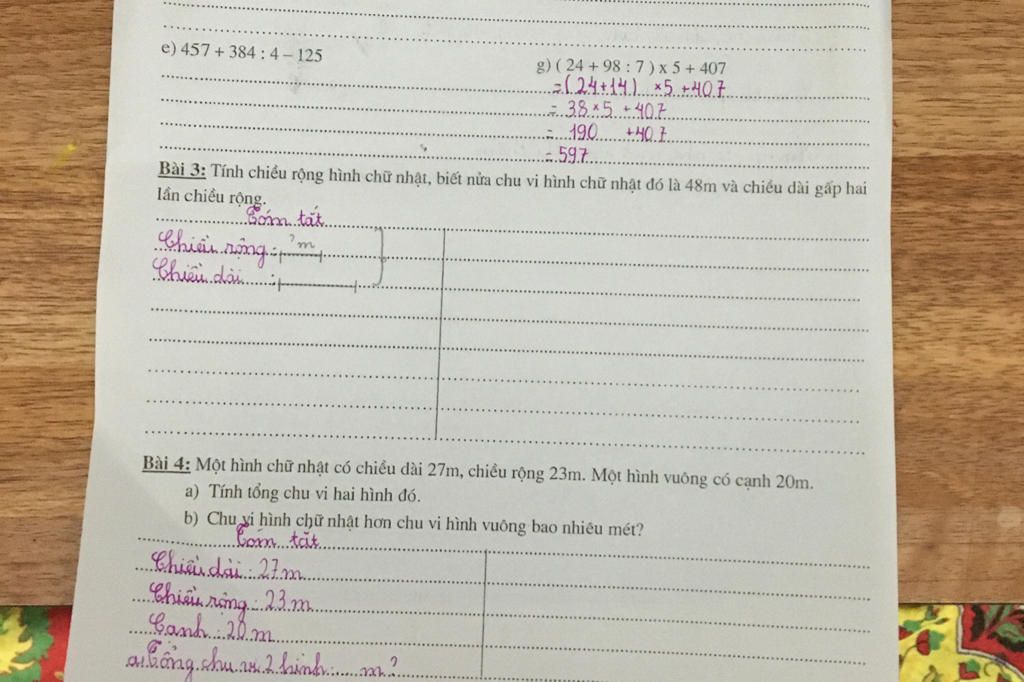 e) 457 + 384 : 4 – 125
g) ( 24 + 98 : 7 ) x 5 + 407
= ( 24 + 14 ) × 5 + 407
= 38 × 5 + 407
= 190 + 407
= 597
Bài 3: Tính chiều rộng hình chữ nhật, biết nửa chu vi hình chữ nhật đó là 48m và chiều dài gấp hai
lần chiều rộng.
Tóm tắt
Chiều rộng : ? m
Chiều dài :
Bài 4: Một hình chữ nhật có chiều dài 27m, chiều rộng 23m. Một hình vuông có cạnh 20m.
a) Tính tổng chu vi hai hình đó.
b) Chu vi hình chữ nhật hơn chu vi hình vuông bao nhiêu mét?
Tóm tắt
Chiều dài : 27 m
Chiều rộng : 23 m
Cạnh : 20 m
a) Tổng chu vi 2 hình ... m?